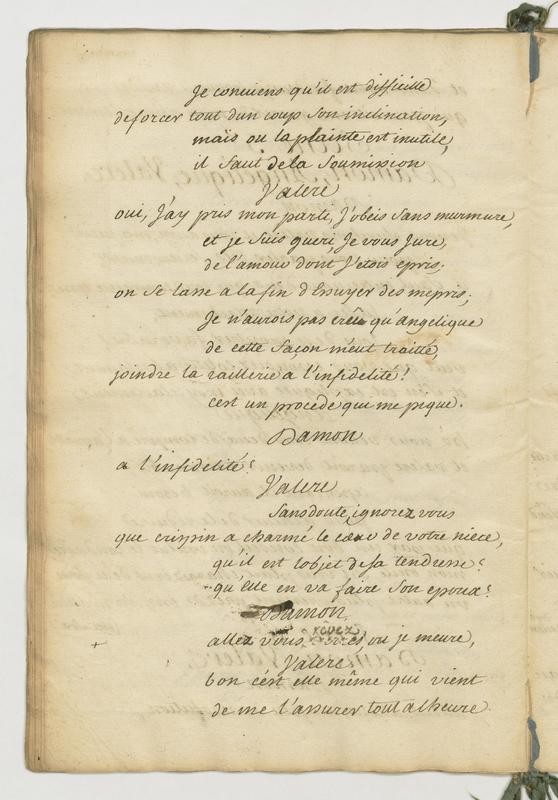 Je conviens qu'il est difficille
deforcer tout dun coup Son inclination,
mais ou la plainte est inutile,
il faut de la Soumission
Valere
oui, J'ay pris mon parti, J'obeis Sans murmure,
et je Suis gueri, Je vous Jure,
de l'amour dont J'etois epris;
on Se lasse a la fin d'Essuyer des mepris;
Je n'aurois pas crû qu'angelique
de cette façon m'eut traitté,
joindre la raillerie a l'infidelité!
cest un procedé qui me pique.
Damon
a l'infidelité?
Valere
Sans doute, ignorez vous
que crispin a charmé le cœur de votre niece,
qu'il est l'objet de sa tendresse?
qu'elle en va faire Son epoux?
Damon
rêvez
allez vous, ou je meure,
Valere
bon c'est elle même qui vient
de me l'assurer tout a l'heure.